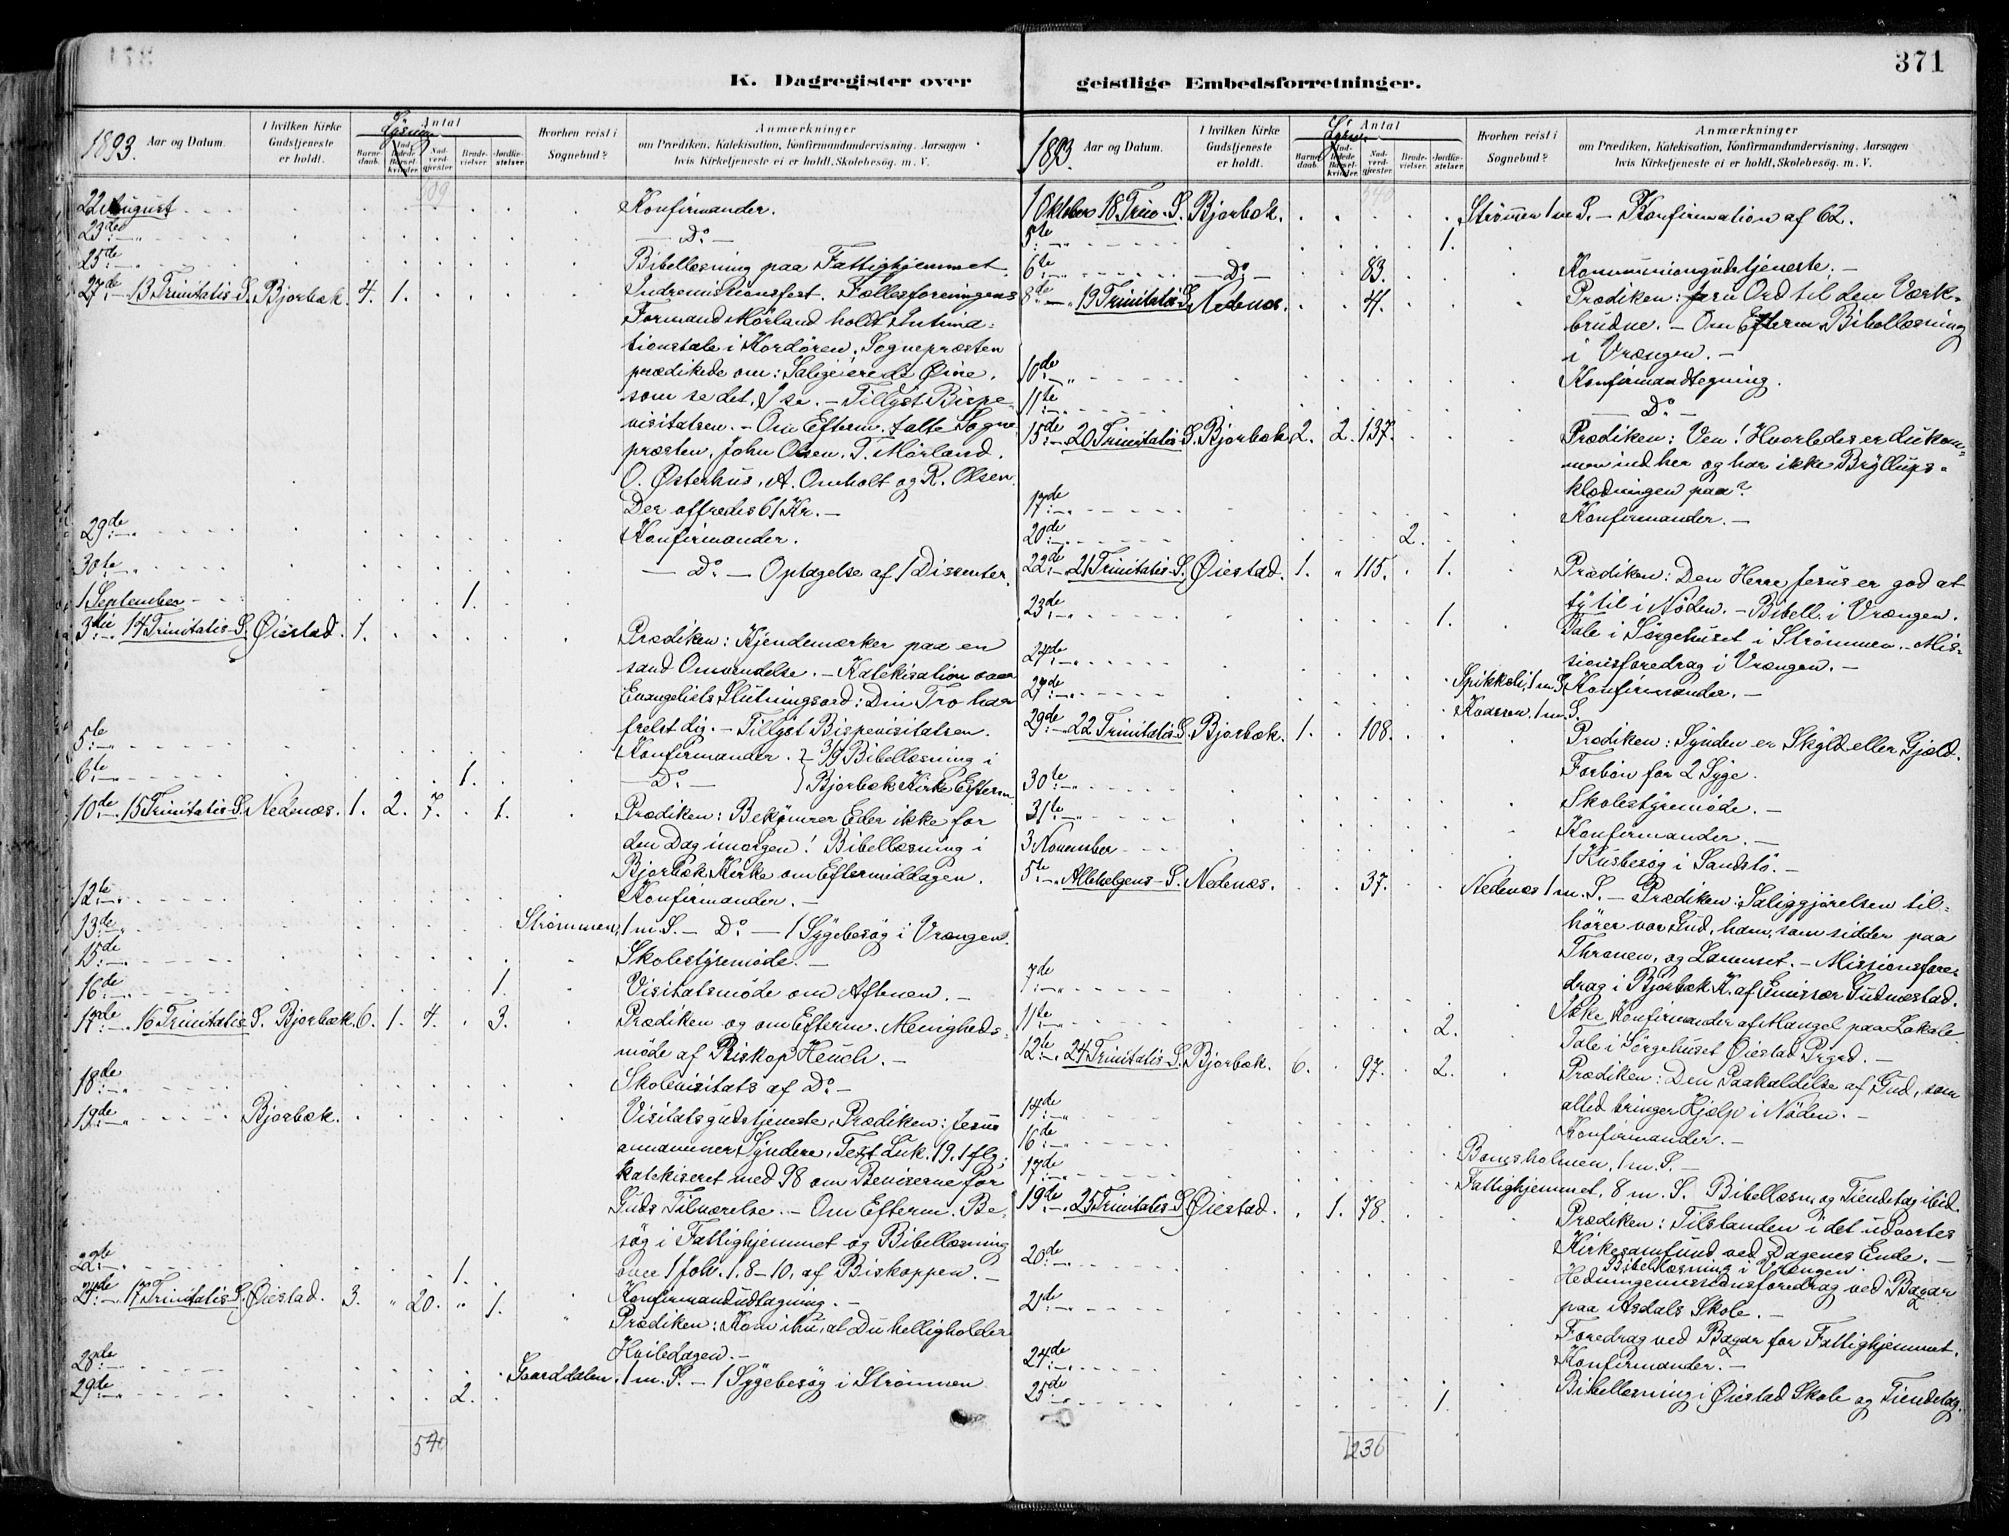 371
K. Dagregister over
1893. Aar og Datum. I hvilken Kirke Gudstjeneste er holdt. Antal Lysning Barnedaab. Indledede Barselkvinder. Nadverdgjæster. Brudevielser. Jordfæstelser. Hvorhen reist i Sognebud? Anmærkninger om Prædiken, Katekisation, Konfirmandundervisning, Aarsagen hvis Kirketjeneste ei er holdt, Skolebesøg m. V.
22 August Konfirmander.
23de — Do —
25de Bibellæsning paa Fattighjemmet
27de 13 Trinitatis S. Bjorbæk. 4. 1. Indremissionsfest. Fællesforeningens
Formand Mørland holdt Intima=
tionstale i Kordøren. Sognepræsten
prædikede om: Salige ere de Øine,
som se det, I se. – Tillyst Bispe-
visitatsen. – Om Efterm. talte Sogne
præsten, John Olsen, T. Mørland,
O. Østerhus, A. Omholt og R. Olsen.
Der offredes 61 Kr. –
29de Konfirmander.
30te — Do — Optagelse af 1 Dissenter.
1 September 1.
3die 14 Trinitatis S. Øiestad. 1. Prædiken: Kjendemærker paa en
sand Omvendelse. – Katekisation over
Evangeliets Slutningsord: Din Tro har
frelst dig. – Tillyst Bispevisitatsen.
5te Konfirmander. } 3/9 Bibellæsning i
6te 1. — Do — } Bjorbæk Kirke Efterm.
10de 15 Trinitatis S. Nedenæs. 1. 2. 7. 1. Prædiken: Bekymrer Eder ikke for
den Dag imorgen! Bibellæsning i
Bjorbæk Kirke om Eftermiddagen.
12te Konfirmander. –
13de Strømmen, 1 m. S. – Do — 1 Sygebesøg i Vrængen.
15de Skolestyremøde. –
16de 1. Visitatsmøde om Aftenen. –
17de 16 Trinitatis S. Bjorbæk. 6. 1. 4. 3. Prædiken og om Efterm. Menigheds=
møde af Biskop Heuch. –
18de Skolevisitats af Do –
19de Bjorbæk. Visitatsgudstjeneste, Prædiken: Jesus
annammer Syndere, Text Luk. 19, 1 flg.;
katekiseret med 98 om Beviserne for
Guds Tilværelse. – Om Efterm. Be-
søg i Fattighjemmet og Bibellæsning
22de 1. over 1 Joh. 1, 8–10, af Biskoppen. –
Konfirmandudtagning. –
24de 17 Trinitatis S. Øiestad. 3. " 20. " 1. Prædiken: Kom ihu, at Du helligholder
Hviledagen. –
28de 1 m. S. – 1 Sygebesøg i Strømmen
29de 2.
540
geistlige Embedsforretninger.
1893. Aar og Datum. I hvilken Kirke Gudstjeneste er holdt. Antal Barnedaab. Indledede Barselkvinder. Nadverdgjæster. Brudevielser. Jordfæstelser. Hvorhen reist i Sognebud? Anmærkninger om Prædiken, Katekisation, Konfirmandundervisning, Aarsagen hvis Kirketjeneste ei er holdt, Skolebesøg m. V.
1 Oktober 18. Trin. S. Bjorbæk. Strømmen 1 m. S. – Konfirmation af 62.
5te 1.
6te — Do — 83. Kommuniongudstjeneste. –
8de 19 Trinitatis S. Nedenæs. 4. Prædiken: Jesu Ord til den Værk-
brudne. – Om Efterm. Bibellæsning
i Vrængen. –
10de Konfirmandtegning.
11te — Do —
15de 20 Trinitatis S. Bjorbæk 2. 2. 137. Prædiken: Ven! Hvorledes er du kom-
men ind her og har ikke Bryllups-
klædningen paa?
17de Konfirmander. –
20de 2.
22de 21 Trinitatis S. Øiestad. 1. " 115. 1. Prædiken: Den Herre Jesus er god at
ty til i Nøden. – Bibell. i Vrængen.
23de 1. Tale i Sørgehuset i Strømmen. – Mis-
24de sionsforedrag i Vrængen. –
27de Spikkeli, 1 m. S. Konfirmander. –
1 m. S.
29de 22 Trinitatis S. Bjorbæk. 1. 108. Prædiken: Synden er Skyld eller Gjæld.
Forbøn for 2 Syge.
30te Skolestyremøde. –
31te Konfirmander. –
3 November 1 Husbesøg i Sandstø. –
5te Allehelgens S. Nedenæs. 37. Nedenæs 1 m. S. – Prædiken: Saliggjørelsen til-
hører vor Gud, ham, som sidder paa
Thronen, og Lammet. – Missionsfore-
drag i Bjorbæk K. af Emissær Gudmestad.
7de Ikke Konfirmander af Mangel paa Lokale
11te 2. Tale i Sørgehuset Øiestad Prgrd. –
12te 24 Trinitatis S. Bjorbæk. 6. 97. 2. Prædiken: Den Paakaldelse af Gud, som
altid bringer Hjælp i Nøden. –
14de Konfirmander. –
16de Bomsholmen, 1 m. S. –
17de Fattighjemmet, 8 m. S. Bibellæsn. og Tiendetag ibid.
19de 25 Trinitatis S. Øiestad. 1. 78. Prædiken: Tilstanden i det udvortes
Kirkesamfund ved Dagenes Ende. –
Bibellæsning i Vrængen.
20de Hedningemissionsforedrag ved
21de paa Asdals Skole. –
Foredrag ved for Fattighjemmet.
24de Konfirmander. –
25de 1. Bibellæsning i Øiestad Skole og Tiendetag.
1236